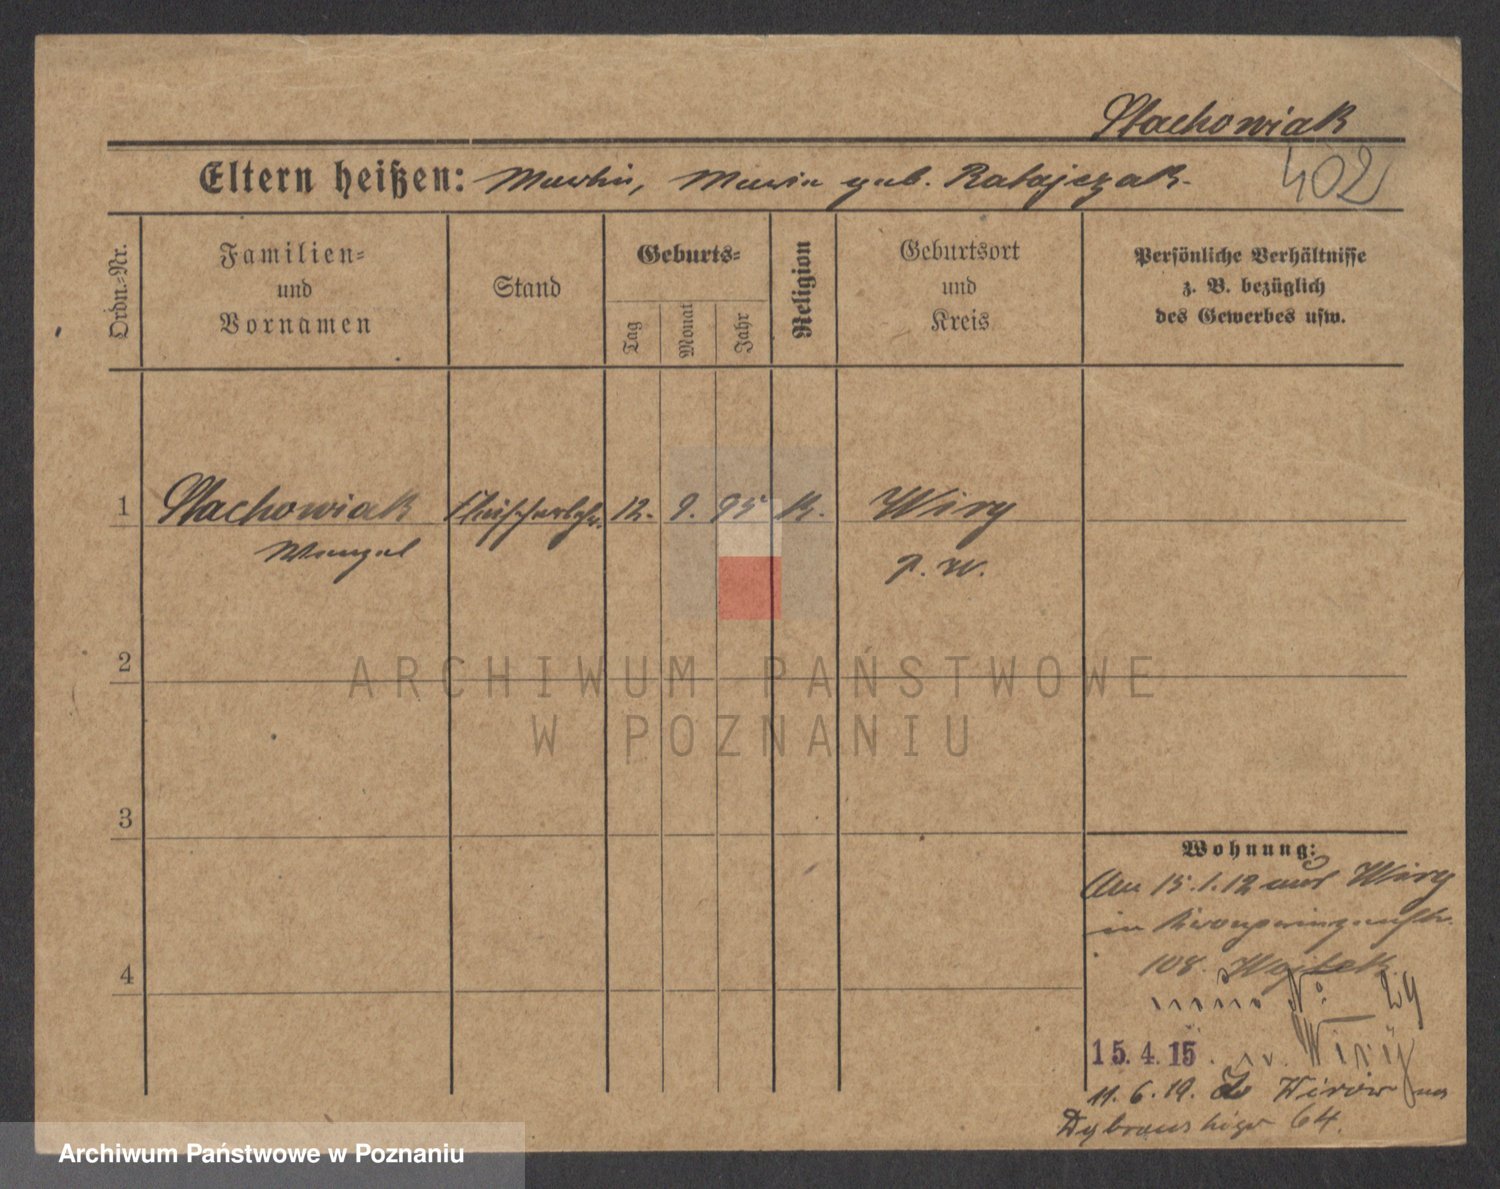 Stachowiak
402
Eltern heißen: Martin, Maria geb. Ratajczak.
Ordn.-Nr.
Familien- und Vornamen
Stand
Geburts-
Tag
Monat
Jahr
Religion
Geburtsort und Kreis
Persönliche Verhältnisse
z. B. bezüglich
des Gewerbes usw.
1 Stachowiak 12. 9. 95 K. Wiry
Wenzel P. W.
2
3
4
Wohnung:
Am 15.1.12 aus Wiry
in Kronprinzenstr.
108. Wojtek
neue No 29
15.4.15. n. Wiry
11.6.19. z Wirów na
64.
ARCHIWUM PAŃSTWOWE
W POZNANIU
Archiwum Państwowe w Poznaniu